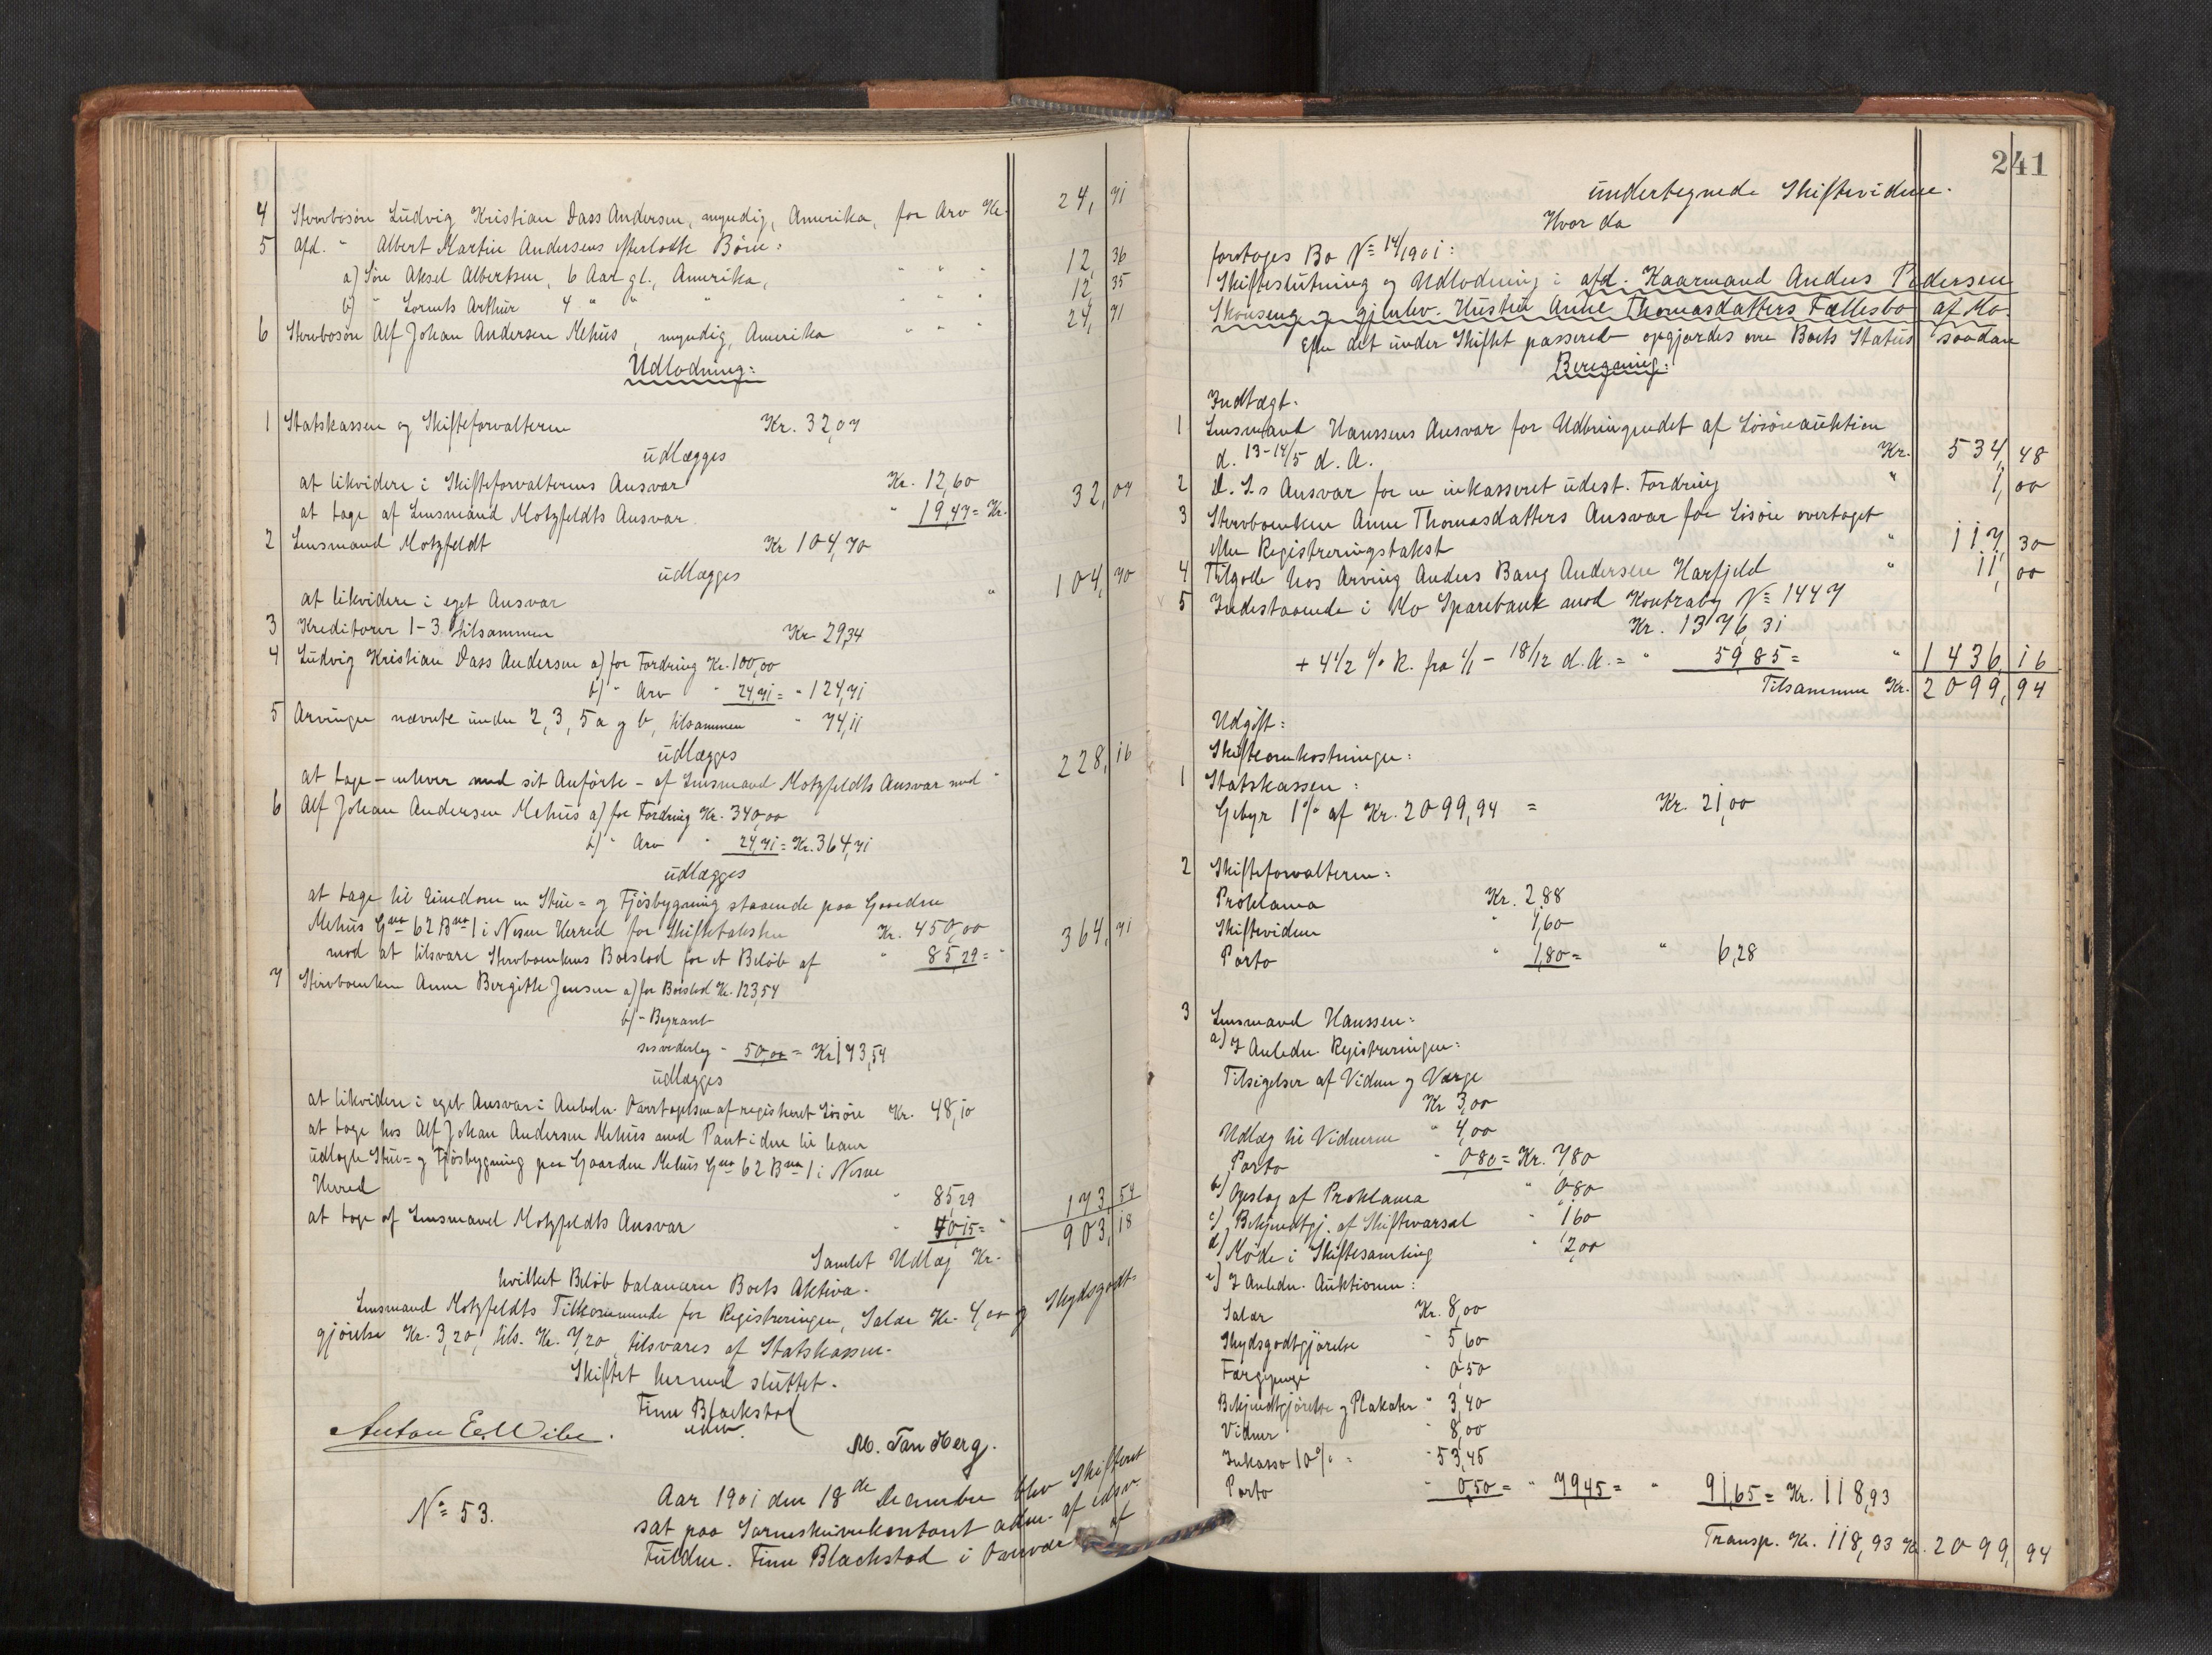 4 Stervbosøn Ludvig Kristian Dass Andersen, myndig, Amerika, for Arv Kr. 24,71
5 Afd. " Albert Martin Andersens efterladte Børn:
a) Søn Aksel Albertsen, 6 Aar gl., Amerika, " " " 12,36
b) " Lornts Arthur 4 " " " " " " 12,35
6 Stervbosøn Alf Johan Andersen Mehus, myndig, Amerika " " " 24,71
Udlodning:
1 Statskassen og Skifteforvalteren Kr. 32,07
udlægges
at likvidere i Skifteforvalterens Ansvar Kr. 12,60
at tage af Lensmand Motzfeldts Ansvar " 19,47 = Kr. 32,07
2 Lensmand Motzfeldt Kr 104,70
udlægges
at likvidere i eget Ansvar " 104,70
3 Kreditorer 1-3 tilsammen Kr 29,34
4 Ludvig Kristian Dass Andersen a) for Fordring Kr. 100,00
b) " Arv " 24,71 = " 124,71
5 Arvinger nævnte under 2, 3, 5 a og b, tilsammen " 74,11
udlægges
at tage - enhver med sit Anførte - af Lensmand Motzfeldts Ansvar med " 228,16
6 Alf Johan Andersen Mehus a) for Fordring Kr. 340,00
b) " Arv " 24,71 = Kr. 364,71
udlægges
at tage til Eiendom en Stue= og Fjøsbygning staaende paa Gaarden
Mehus Gno 62 Bno 1 i Nesne Herred for Skiftetaksten Kr. 450,00
mod at tilsvare Stervboenkens Boeslod for et Beløb af " 85,29 = " 364,71
7 Stervboenken Anne Birgitte Jensen a) for Boeslod Kr. 123,54
b) " Begravel-
sesvederlag " 50,00 = Kr 173,54
udlægges
at likvidere i eget Ansvar i Anledn. Overtagelsen af registreret Løsøre Kr. 48,10
at tage hos Alf Johan Andersen Mehus med Pant i den til ham
udlagte Stue= og Fjøsbygning paa Gaarden Mehus Gno 62 Bno 1 i Nesne
Herred " 85,29
at tage af Lensmand Motzfeldts Ansvar " 40,15 = " 173,54
Samlet Udlæg Kr. 903,18
hvilket Beløb balancerer Boets Aktiva.
Lensmand Motzfeldts Tilkommende for Registreringen, Salær Kr. 4,00 og Skydsgodt-
gjørelse Kr. 3,20, tils. Kr. 7,20, tilsvares af Statskassen.
Skiftet hermed sluttet.
Finn Blackstad
edsv.
Anton E. Wibe. M. Tan Herg.
No 53. Aar 1901 den 18de December blev Skifteret
sat paa Sorenskriverkontoret adm. af edsv.
Fuldm. Finn Blackstad i Overvær af
241
undertegnede Skiftevidner.
Hvor da
foretoges Bo No 14/1901:
Skifteslutning og Udlodning i afd. Kaarmand Anders Pedersen
Skonseng og gjenlev. Hustru Anne Thomasdatters Fællesbo af Mo.
Efter det under Skiftet passerede opgjordes over Boets Status saadan
Beregning:
Indtægt.
1 Lensmand Hanssens Ansvar for Udbringendet af Løsøreauktion
d. 13-14/5 d. A. Kr. 534,48
2 D. S.s Ansvar for en inkasseret udest. Fordring " 1,00
3 Stervboenken Anne Thomasdatters Ansvar for Løsøre overtaget
efter Registreringstakst " 117,30
4 Tilgode hos Arving Anders Bang Andersen Harfjeld " 11,00
5 Indestaaende i Mo Sparebank mod Kontrabog No 1447
Kr. 1376,31
+ 4 1/2 % R. fra 1/1 - 18/12 d. A. = " 59,85 = " 1436,16
Tilsammen Kr. 2099,94
Udgift:
Skifteomkostninger:
1 Statskassen:
Gebyr 1% af Kr. 2099,94 = Kr. 21,00
2 Skifteforvalteren:
Proklama Kr. 2,88
Skiftevidner " 1,60
Porto " 1,80 = " 6,28
3 Lensmand Hanssen:
a) I Anledn. Registreringen:
Tilsigelser af Vidner og Værge
Kr 3,00
Udlæg til Vidnerne " 4,00
Porto " 0,80 = Kr. 7,80
b) Opslag af Proklama " 0,80
c) Bekjendtgj. af Skiftevarsel " 1,60
d) Møde i Skiftesamling " 2,00
e) I Anledn. Auktionen:
Salær Kr. 8,00
Skydsgodtgjørelse " 5,60
Færgepenge " 0,50
Bekjendtgjørelse og Plakater " 3,40
Vidner " 8,00
Inkasso 10% " 53,45
Porto " 0,50 = " 79,45 = " 91,65 = Kr. 118,93
Transp. Kr. 118,93 Kr. 2099,94